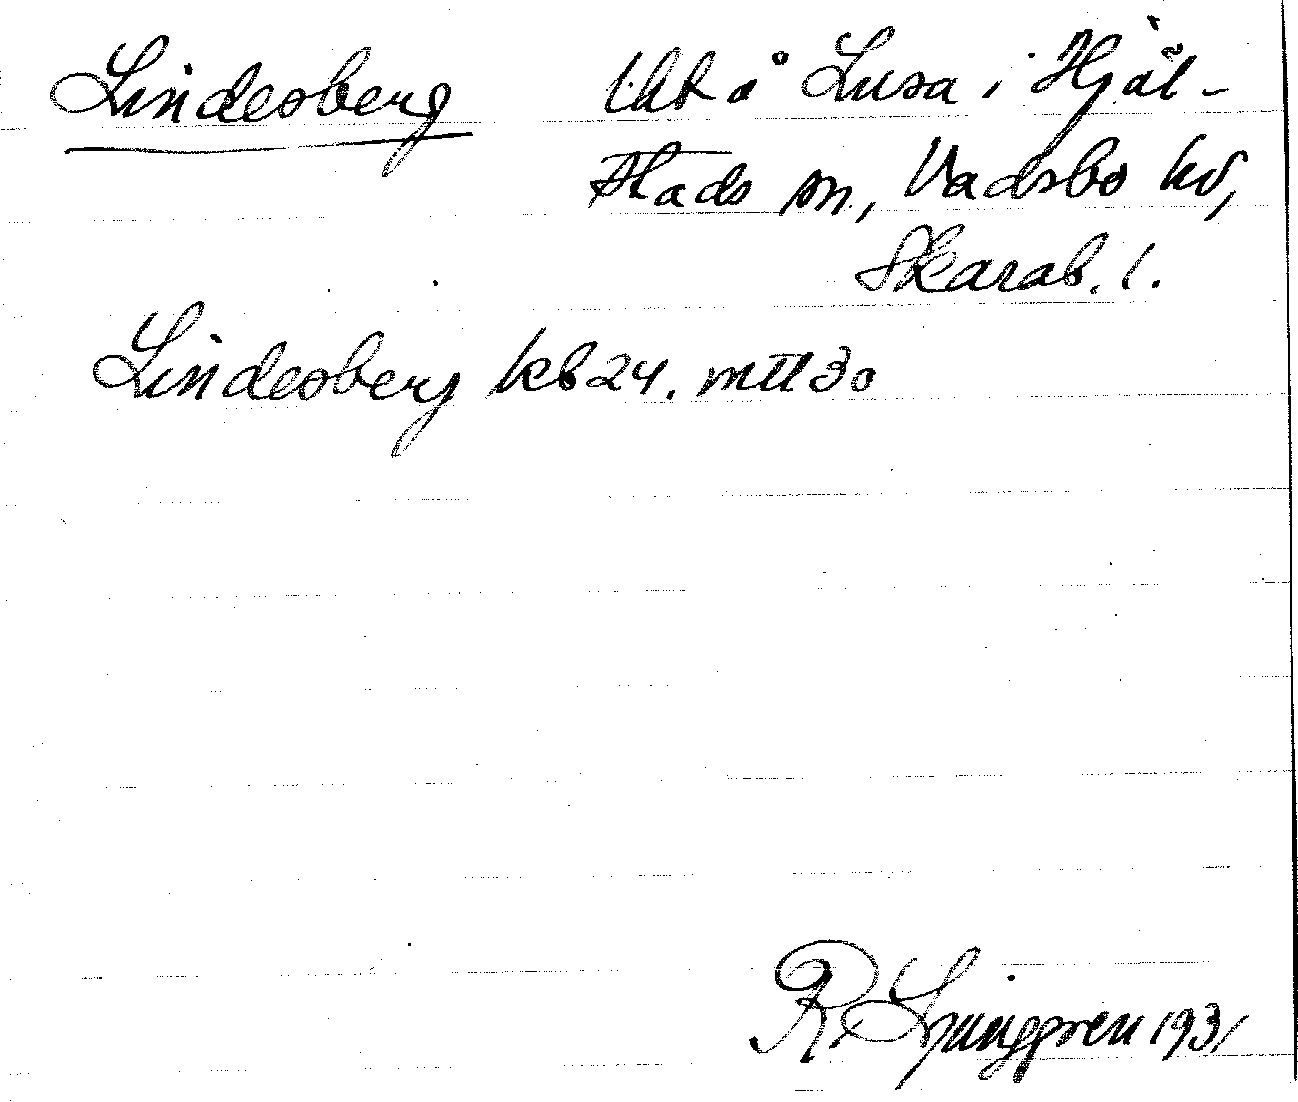 Lindesberg Uht å Lusa i Hjäl-
stads sn, Vadsbo hd,
Skarab. l.
Lindesberg kb 24. mtl 30
R. Ljunggren 1931